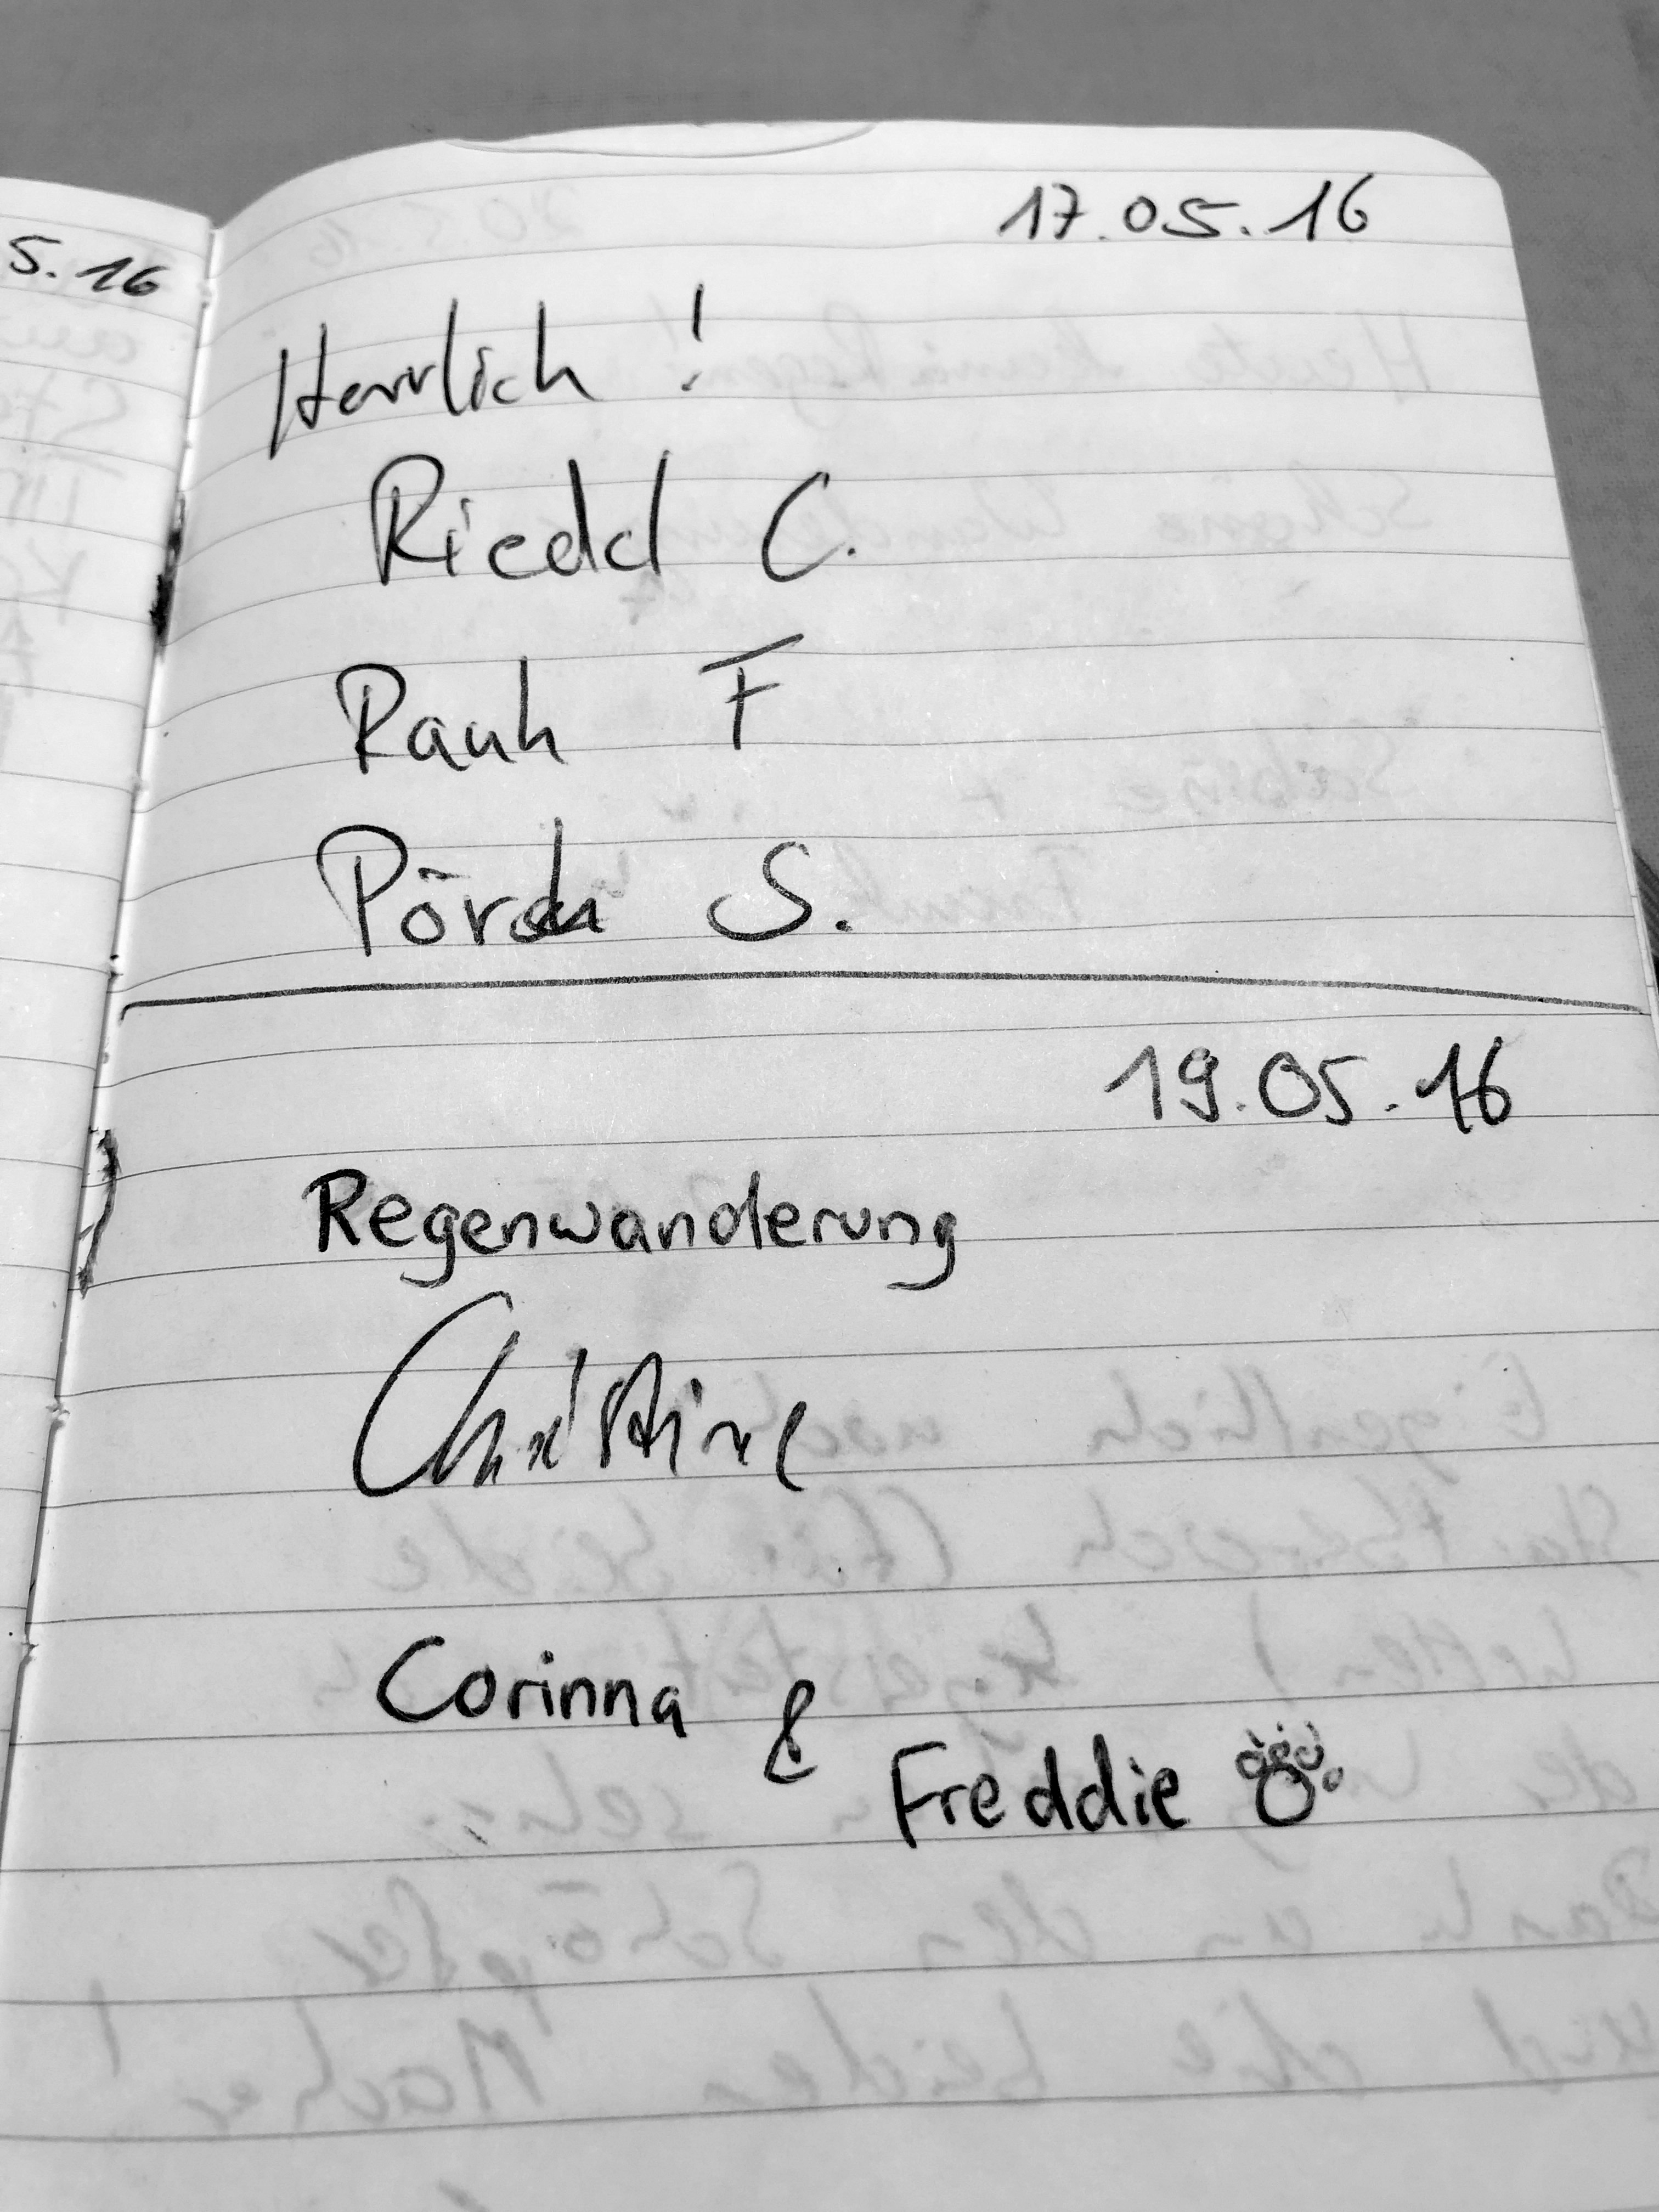 5.16
17.05.16
Herrlich !
Riedl C.
Rauh F
S.
19.05.16
Regenwanderung
Christine
Corinna &
Freddie